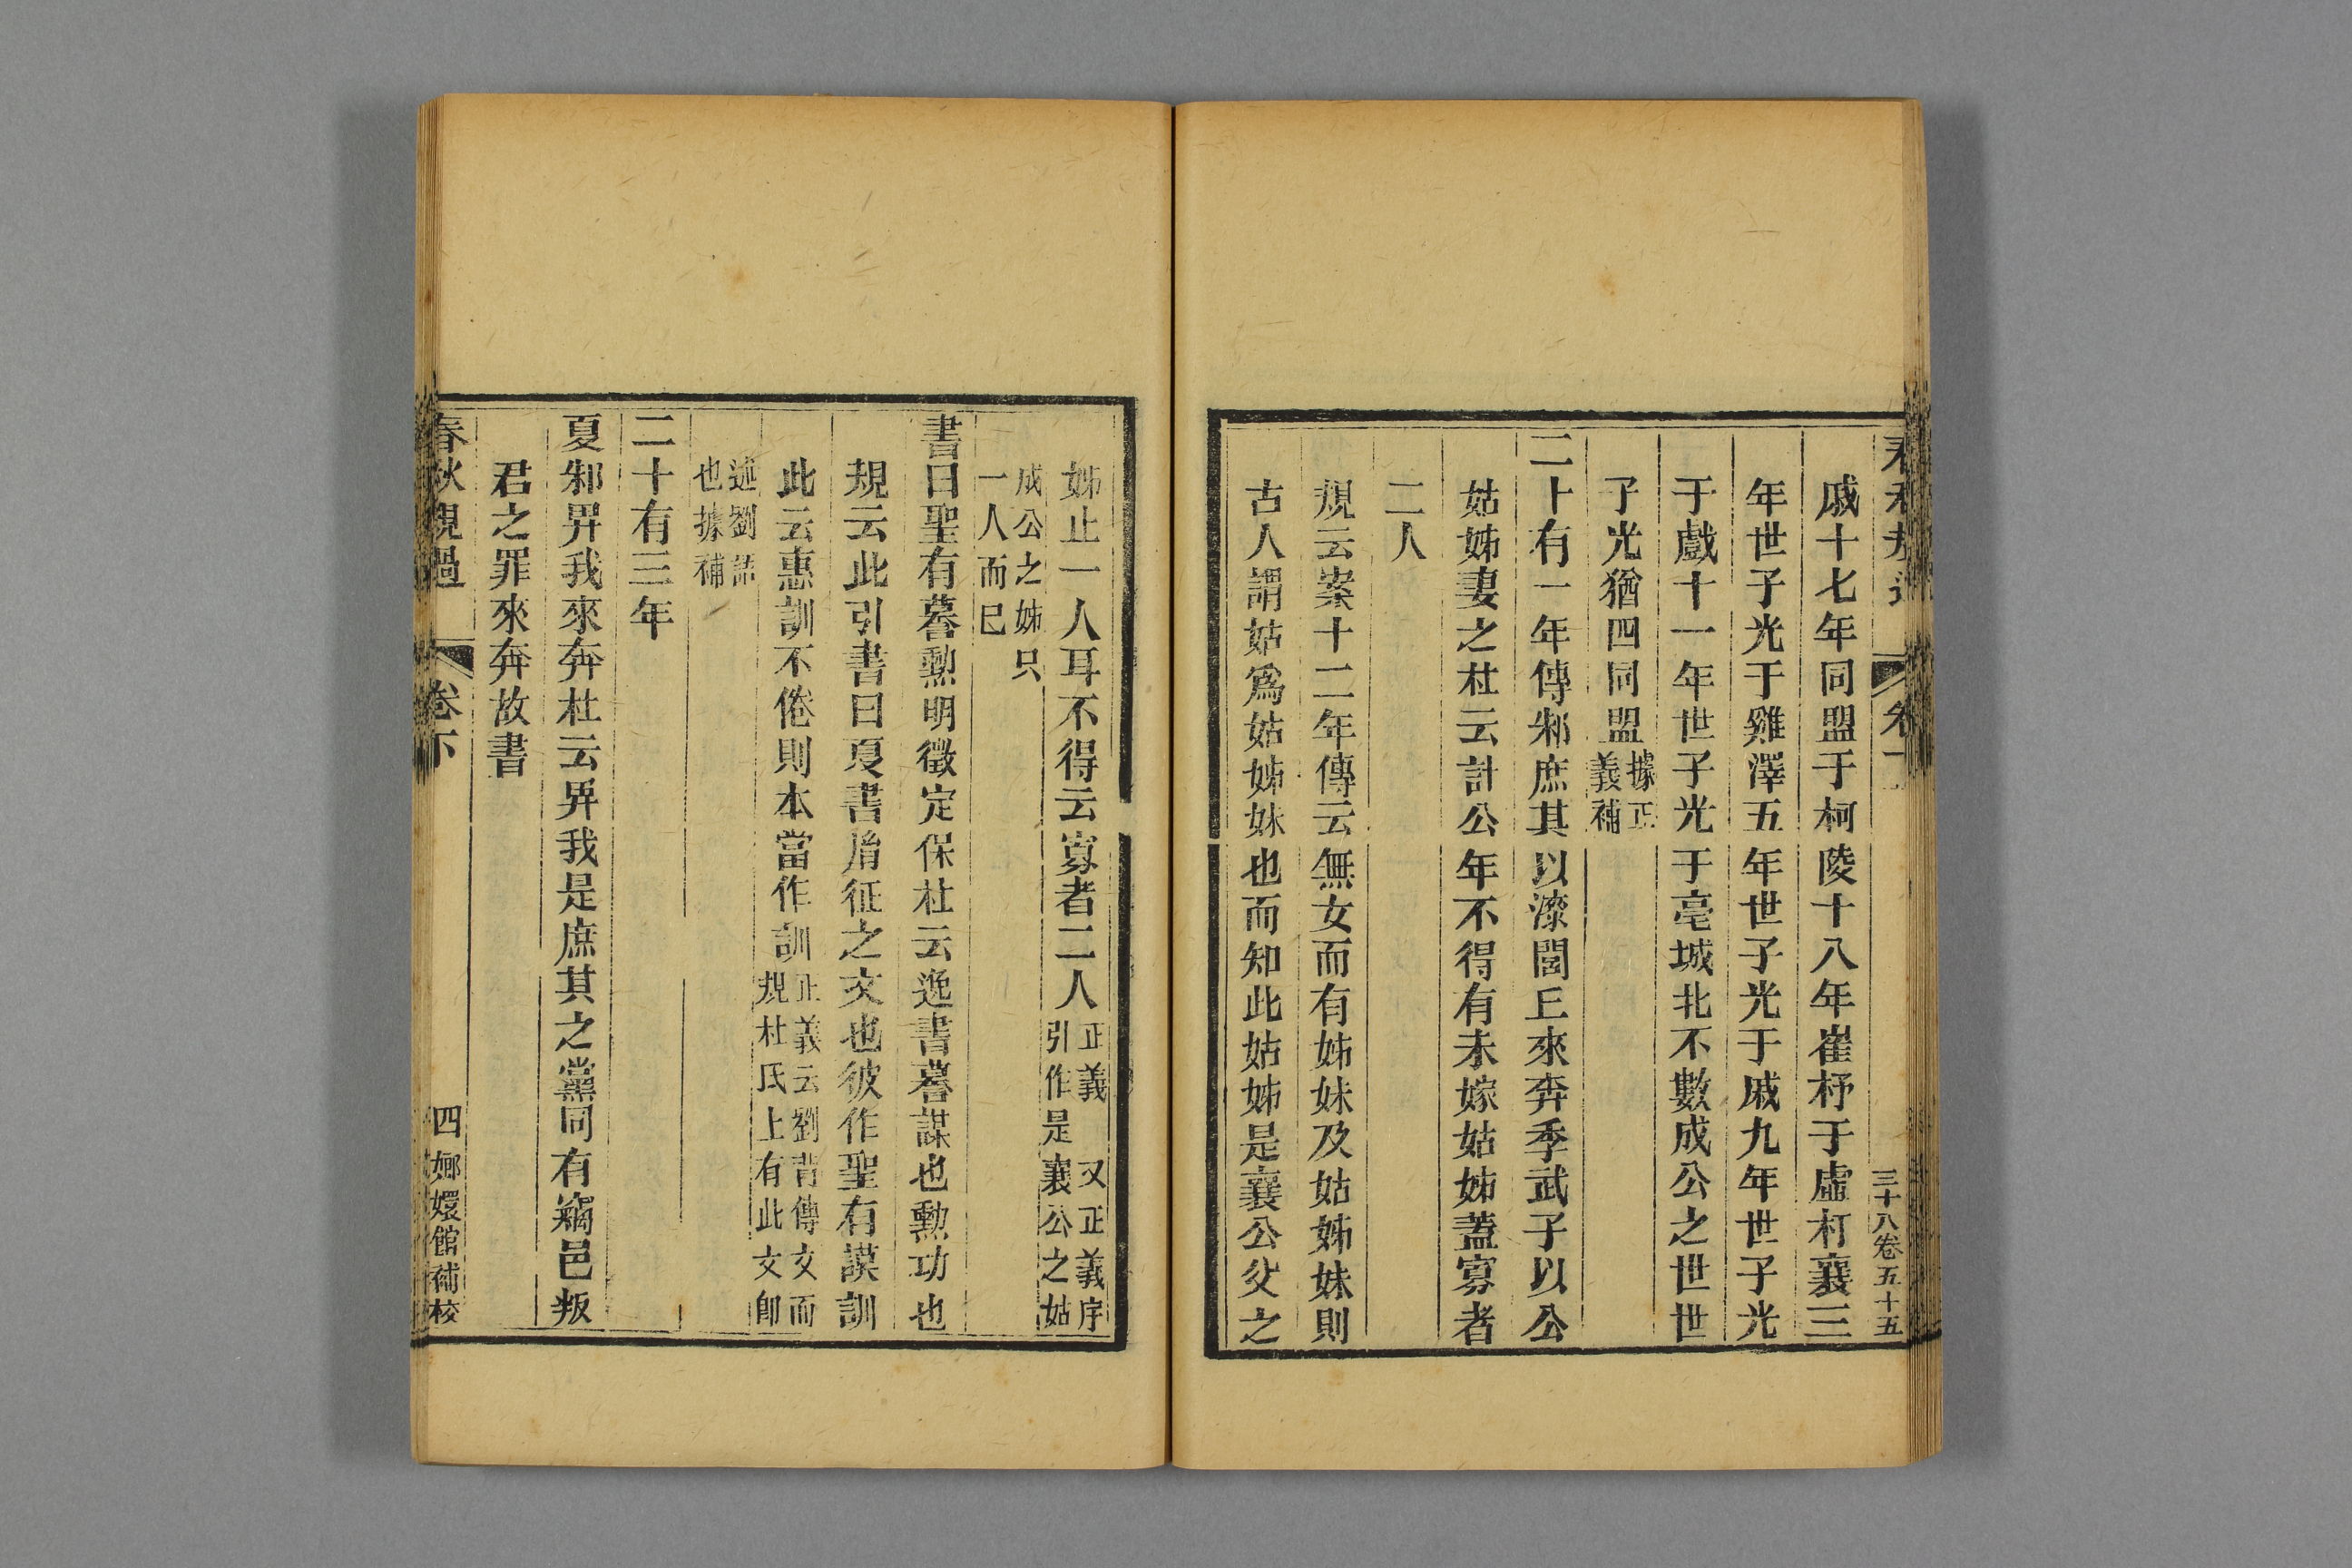 三十八卷五十五
戚十七年同盟于柯陵十八年崔杼于虛朾襄三
年世子光于雞澤五年世子光于戚九年世子光
于戲十一年世子光于亳城北不數成公之世世
子光猶四同盟據正義補
二十有一年傳邾庶其以漆閭丘來奔季武子以公
姑姊妻之杜云計公年不得有未嫁姑姊蓋寡者
二人
規云案十二年傳云無女而有姊妹及姑姊妹則
古人謂姑爲姑姊妹也而知此姑姊是襄公父之
姊止一人耳不得云寡者二人正義引作是襄公之姑 又正義序
成公之姊只一人而已
書曰聖有謩勲明徵定保杜云逸書謩謀也勲功也
規云此引書曰夏書胤征之文也彼作聖有謨訓
此云惠訓不倦則本當作訓正義云劉背傳文而規杜氏上有此文卽
述劉語也據補
二十有三年
夏邾畀我來奔杜云畀我是庶其之黨同有竊邑叛
君之罪來奔故書
春秋規過 卷下 四 嫏嬛館補校